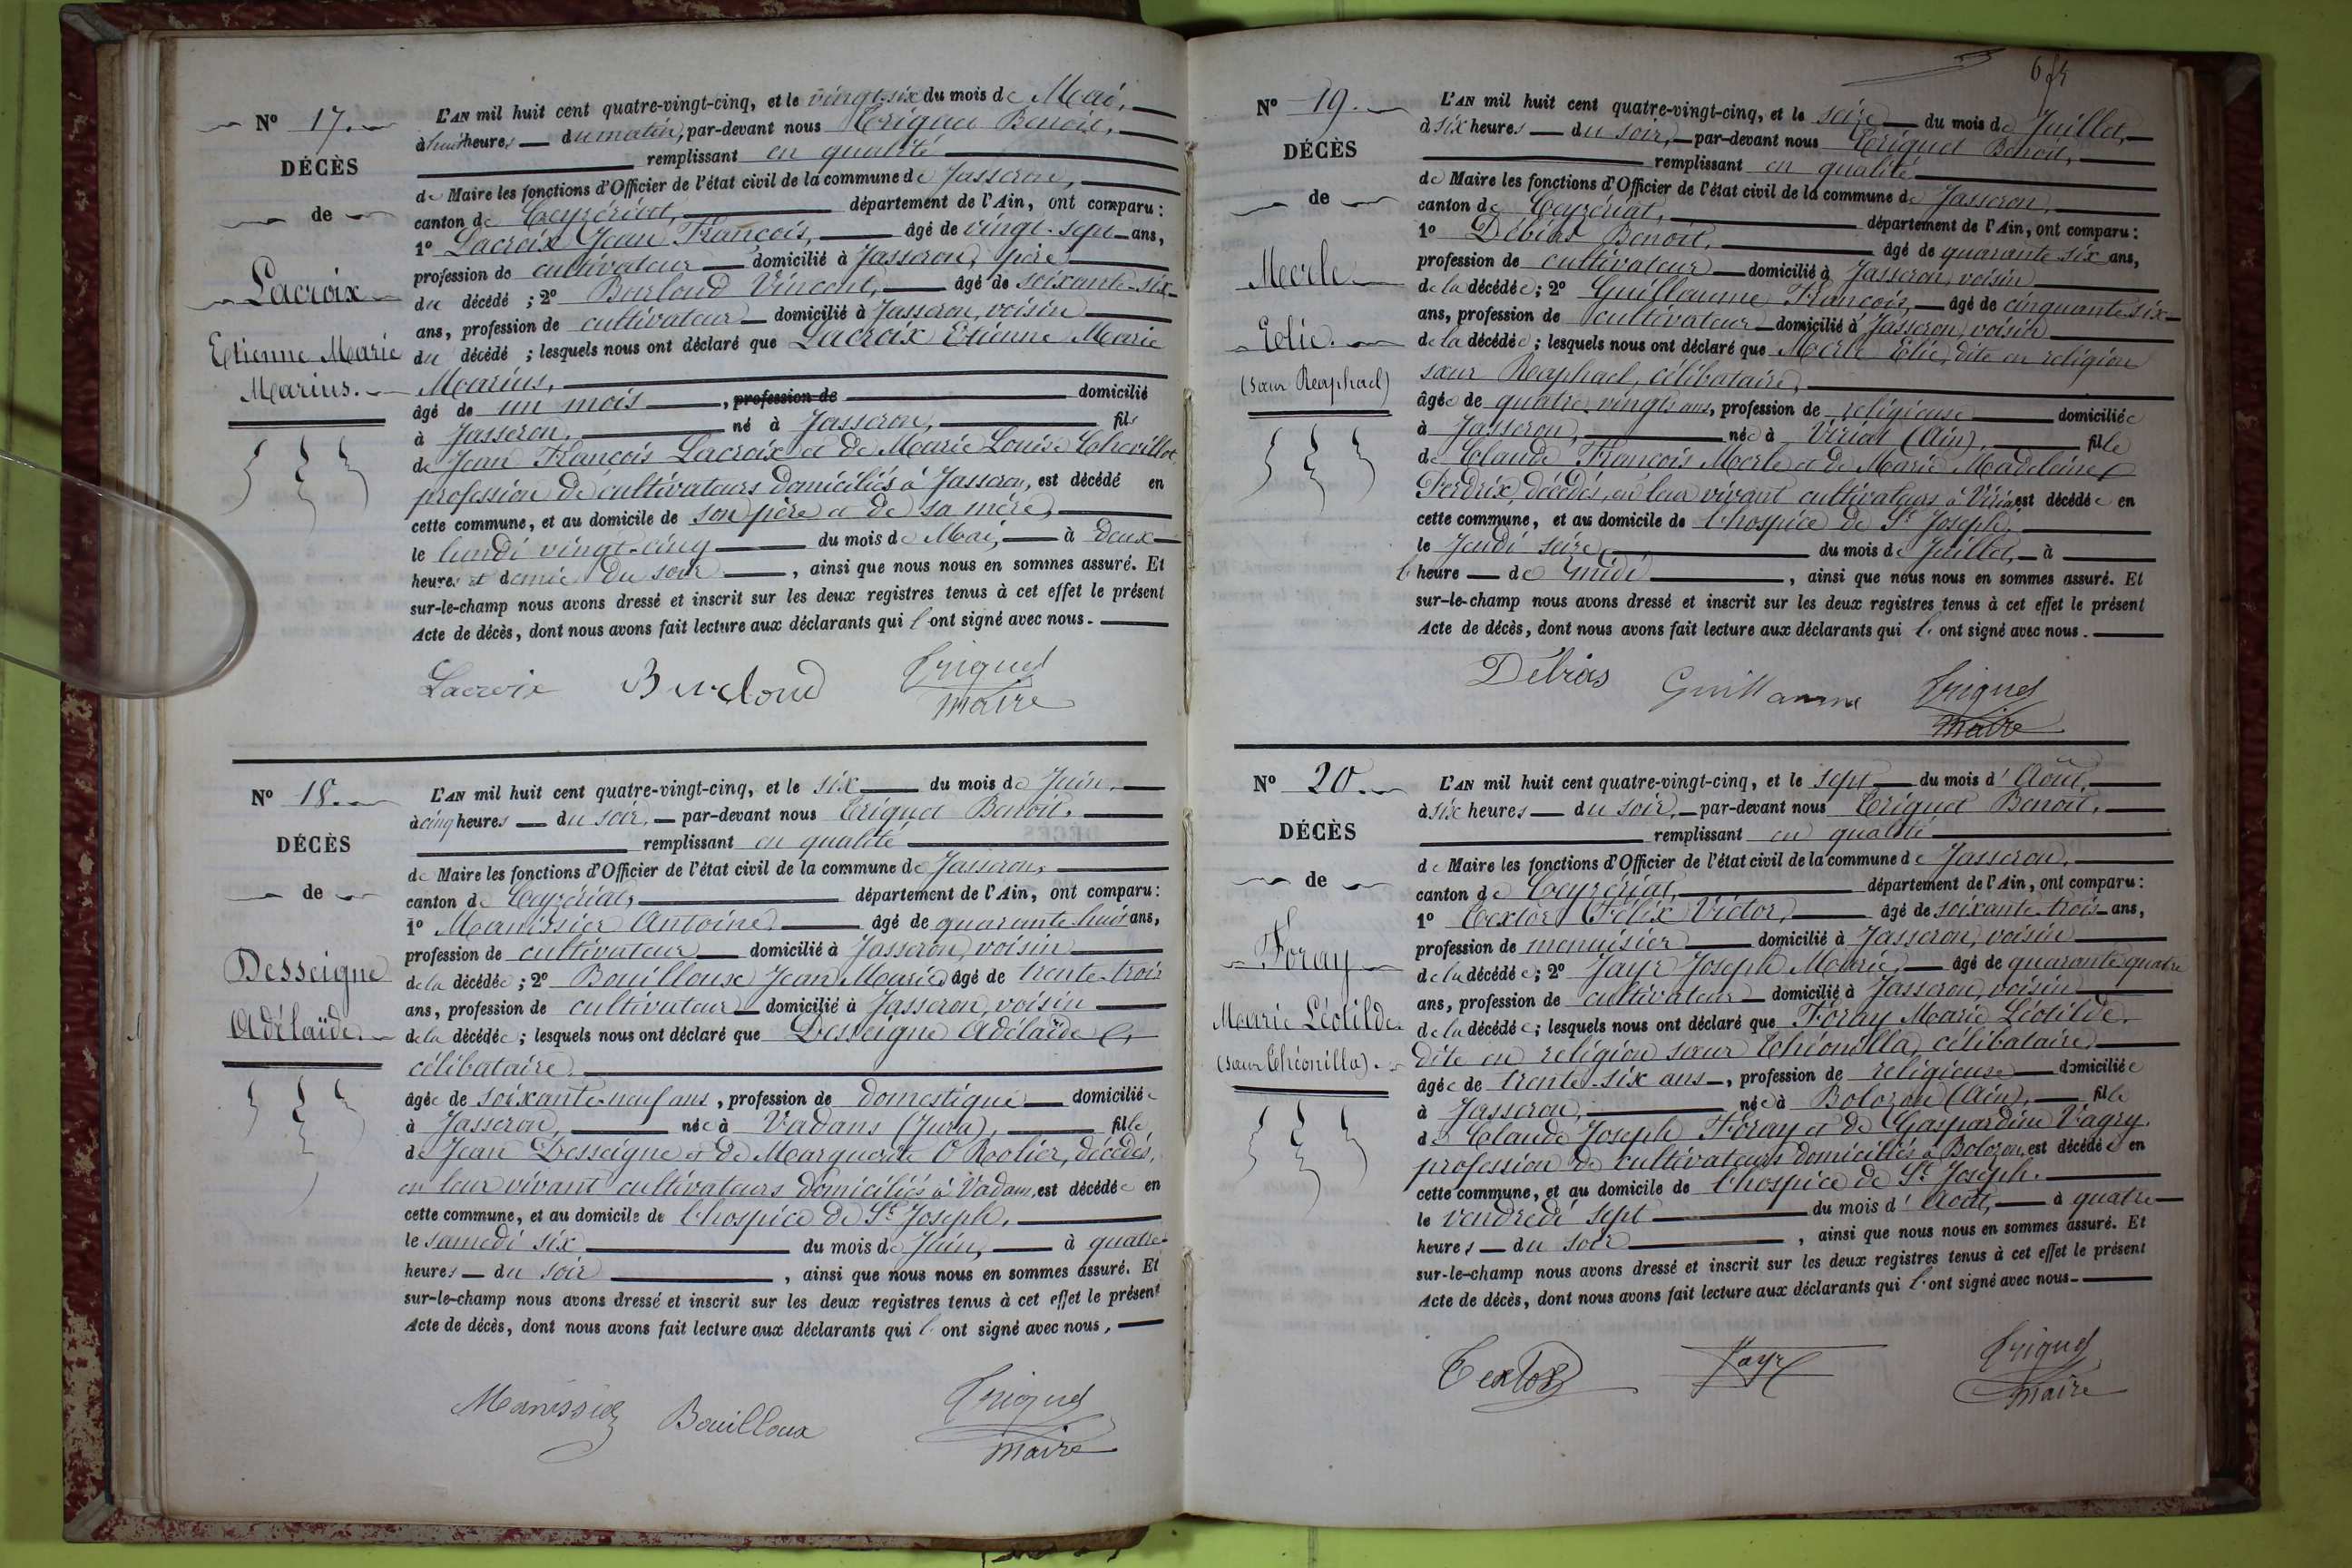 N° 17.
DÉCÈS
de
Lacroix
Etienne Marie
Marius.
L'AN mil huit cent quatre-vingt-cinq, et le vingt-six du mois de Mai,
à huit heures du matin, par-devant nous Triquet Benoit,
remplissant en qualité
de Maire les fonctions d'Officier de l'état civil de la commune de Jasseron,
canton de Ceyzériat, département de l'Ain, ont comparu :
1° Lacroix Jean François, âgé de vingt-sept ans,
profession de cultivateur domicilié à Jasseron, père
du décédé ; 2° Burloud Vincent, âgé de soixante-six
ans, profession de cultivateur domicilié à Jasseron, voisin
du décédé ; lesquels nous ont déclaré que Lacroix Etienne Marie
Marius,
âgé de un mois, profession de domicilié
à Jasseron, né à Jasseron, fils
de Jean François Lacroix et de Marie Louise Chevillot,
profession de cultivateurs domiciliés à Jasseron, est décédé en
cette commune, et au domicile de son père et de sa mère,
le lundi vingt-cinq du mois de Mai, à deux
heures et demie du soir, ainsi que nous nous en sommes assuré. Et
sur-le-champ nous avons dressé et inscrit sur les deux registres tenus à cet effet le présent
Acte de décès, dont nous avons fait lecture aux déclarants qui l'ont signé avec nous.
Lacroix Burloud Triquet
maire
N° 18.
DÉCÈS
de
Desseigne
Adélaïde.
L'AN mil huit cent quatre-vingt-cinq, et le six du mois de Juin,
à cinq heures du soir, par-devant nous Triquet Benoit,
remplissant en qualité
de Maire les fonctions d'Officier de l'état civil de la commune de Jasseron,
canton de Ceyzériat, département de l'Ain, ont comparu :
1° Manissier Antoine, âgé de quarante-huit ans,
profession de cultivateur domicilié à Jasseron, voisin
de la décédée ; 2° Bouilloux Jean Marie, âgé de trente-trois
ans, profession de cultivateur domicilié à Jasseron, voisin
de la décédée ; lesquels nous ont déclaré que Desseigne Adélaïde
célibataire,
âgée de soixante-neuf ans, profession de domestique domiciliée
à Jasseron, née à Vadans (Jura), fille
de Jean Desseigne et de Marguerite Rolier, décédés,
en leur vivant cultivateurs domiciliés à Vadans, est décédée en
cette commune, et au domicile de l'hospice de St Joseph,
le samedi six du mois de Juin, à quatre
heures du soir, ainsi que nous nous en sommes assuré. Et
sur-le-champ nous avons dressé et inscrit sur les deux registres tenus à cet effet le présent
Acte de décès, dont nous avons fait lecture aux déclarants qui l'ont signé avec nous,
Manissier Bouilloux Triquet
maire
N° 19.
DÉCÈS
de
Merle
Elie.
(sœur Reaphael)
L'AN mil huit cent quatre-vingt-cinq, et le seize du mois de Juillet,
à six heures du soir, par-devant nous Triquet Benoit,
remplissant en qualité
de Maire les fonctions d'Officier de l'état civil de la commune de Jasseron,
canton de Ceyzériat, département de l'Ain, ont comparu :
1° Débias Benoit, âgé de quarante-six ans,
profession de cultivateur domicilié à Jasseron, voisin
de la décédée ; 2° Guillaume François, âgé de cinquante-six
ans, profession de cultivateur domicilié à Jasseron, voisin
de la décédée ; lesquels nous ont déclaré que Merle Elie, dite en religion
sœur Reaphael, célibataire,
âgée de quatre-vingts ans, profession de religieuse domiciliée
à Jasseron, née à Viriat (Ain), fille
de Claude François Merle et de Marie Madeleine
Ferdrix, décédés, en leur vivant cultivateurs à Viriat est décédée en
cette commune, et au domicile de l'hospice de St Joseph,
le Jeudi seize du mois de Juillet, à
l'heure de midi, ainsi que nous nous en sommes assuré. Et
sur-le-champ nous avons dressé et inscrit sur les deux registres tenus à cet effet le présent
Acte de décès, dont nous avons fait lecture aux déclarants qui l'ont signé avec nous.
Débias Guillaume Triquet
maire
N° 20.
DÉCÈS
de
Foray
Marie Léotilde.
(sœur Théonilla).
L'AN mil huit cent quatre-vingt-cinq, et le sept du mois d'Août,
à six heures du soir, par-devant nous Triquet Benoit,
remplissant en qualité
de Maire les fonctions d'Officier de l'état civil de la commune de Jasseron,
canton de Ceyzériat, département de l'Ain, ont comparu :
1° Textor Félix Victor, âgé de soixante-trois ans,
profession de menuisier domicilié à Jasseron, voisin
de la décédée ; 2° Jayr Joseph Marie, âgé de quarante-quatre
ans, profession de cultivateur domicilié à Jasseron, voisin
de la décédée ; lesquels nous ont déclaré que Foray Marie Léotilde,
dite en religion sœur Théonilla, célibataire
âgée de trente-six ans, profession de religieuse domiciliée
à Jasseron, née à Bolozon (Ain), fille
de Claude Joseph Foray et de Gaspardine Vagry,
profession de cultivateurs domiciliés à Bolozon, est décédée en
cette commune, et au domicile de l'hospice de St Joseph.
le vendredi sept du mois d'Août, à quatre
heures du soir, ainsi que nous nous en sommes assuré. Et
sur-le-champ nous avons dressé et inscrit sur les deux registres tenus à cet effet le présent
Acte de décès, dont nous avons fait lecture aux déclarants qui l'ont signé avec nous.
Textor Jayr Triquet
maire